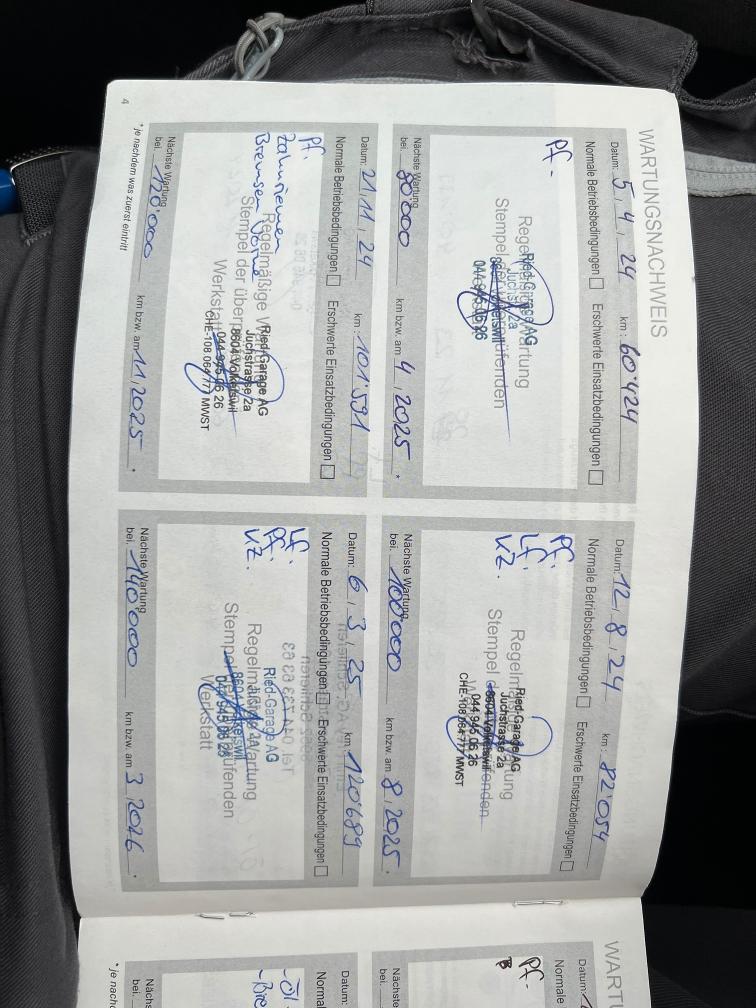 WARTUNGSNACHWEIS
Datum: 5 / 4 / 24 km: 60'424
Normale Betriebsbedingungen Erschwerte Einsatzbedingungen
Pf.
Ried-Garage AG
Juchstrasse 2a
8604 Volketswil
044 945 06 26
Nächste Wartung
bei: 80'000 km bzw. am 4 / 2025 *
Datum: 12 / 8 / 24 km: 82'054
Normale Betriebsbedingungen Erschwerte Einsatzbedingungen
Pf.
Lf.
KZ.
Ried-Garage AG
Juchstrasse 2a
8604 Volketswil
044 945 06 26
CHE-108.064.777 MWST
Nächste Wartung
bei: 100'000 km bzw. am 8 / 2025 *
Datum: 21 / 11 / 24 km: 101'591
Normale Betriebsbedingungen Erschwerte Einsatzbedingungen
Pf.
Zahnriemen
Bremsen Vorne
Regelmäßige
Stempel der
Werkstatt
Ried-Garage AG
Juchstrasse 2a
8604 Volketswil
044 945 06 26
CHE-108.064.777 MWST
Nächste Wartung
bei: 120'000 km bzw. am 11 / 2025 *
Datum: 6 / 3 / 25 km: 120'689
Normale Betriebsbedingungen Erschwerte Einsatzbedingungen
Lf.
Pf.
KZ.
Ried-Garage AG
8604 Volketswil
044 945 06 26
Werkstatt
Nächste Wartung
bei: 140'000 km bzw. am 3 / 2026 *
* je nachdem was zuerst eintritt
4
WARTU
Datum:
Normale
Pf.
Nächs
bei:
Datum:
Normal
Nächs
bei:
* je nach